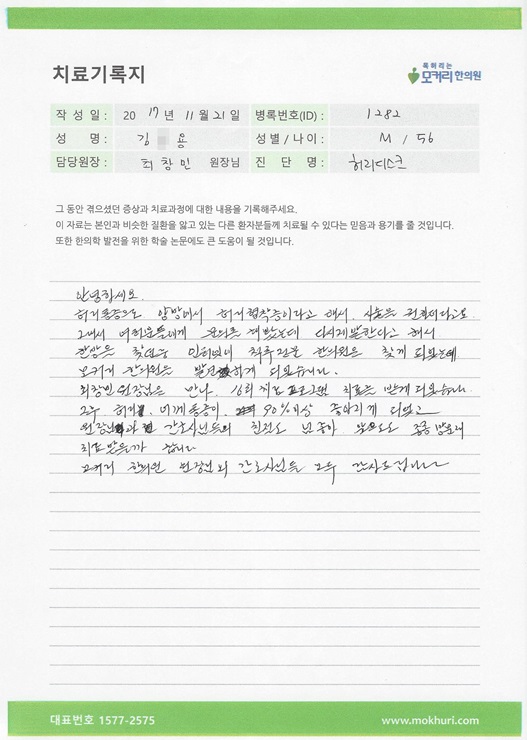 치료기록지
목허리는
모커리한의원
작 성 일 : 20 17 년 11 월 21 일 병록번호(ID) : 1282
성 명 : 김 용 성별 / 나이 : M / 56
담당원장 : 최창민 원장님 진 단 명 : 허리디스크
그 동안 겪으셨던 증상과 치료과정에 대한 내용을 기록해주세요.
이 자료는 본인과 비슷한 질환을 앓고 있는 다른 환자분들께 치료될 수 있다는 믿음과 용기를 줄 것입니다.
또한 한의학 발전을 위한 학술 논문에도 큰 도움이 될 것입니다.
안녕하세요.
허리통증으로 양방에서 허리협착증이라고 해서. 수술을
그래서 해봤는데 다시재발한다고 해서
한방을 척추전문 한의원을 찾게 되었는데
모커리 한의원을 발견하게 되었습니다.
최창민원장님을 만나. 치료프로그램 치료를 받게되었습니다.
통증이 90%이상 좋아지게 되었고
원장님과 간호사님들의 친절도 종종
치료받을까 합니다
모커리 한의원 원장님외 간호사님들 모두 감사드립니다
대표번호 1577-2575
www.mokhuri.com